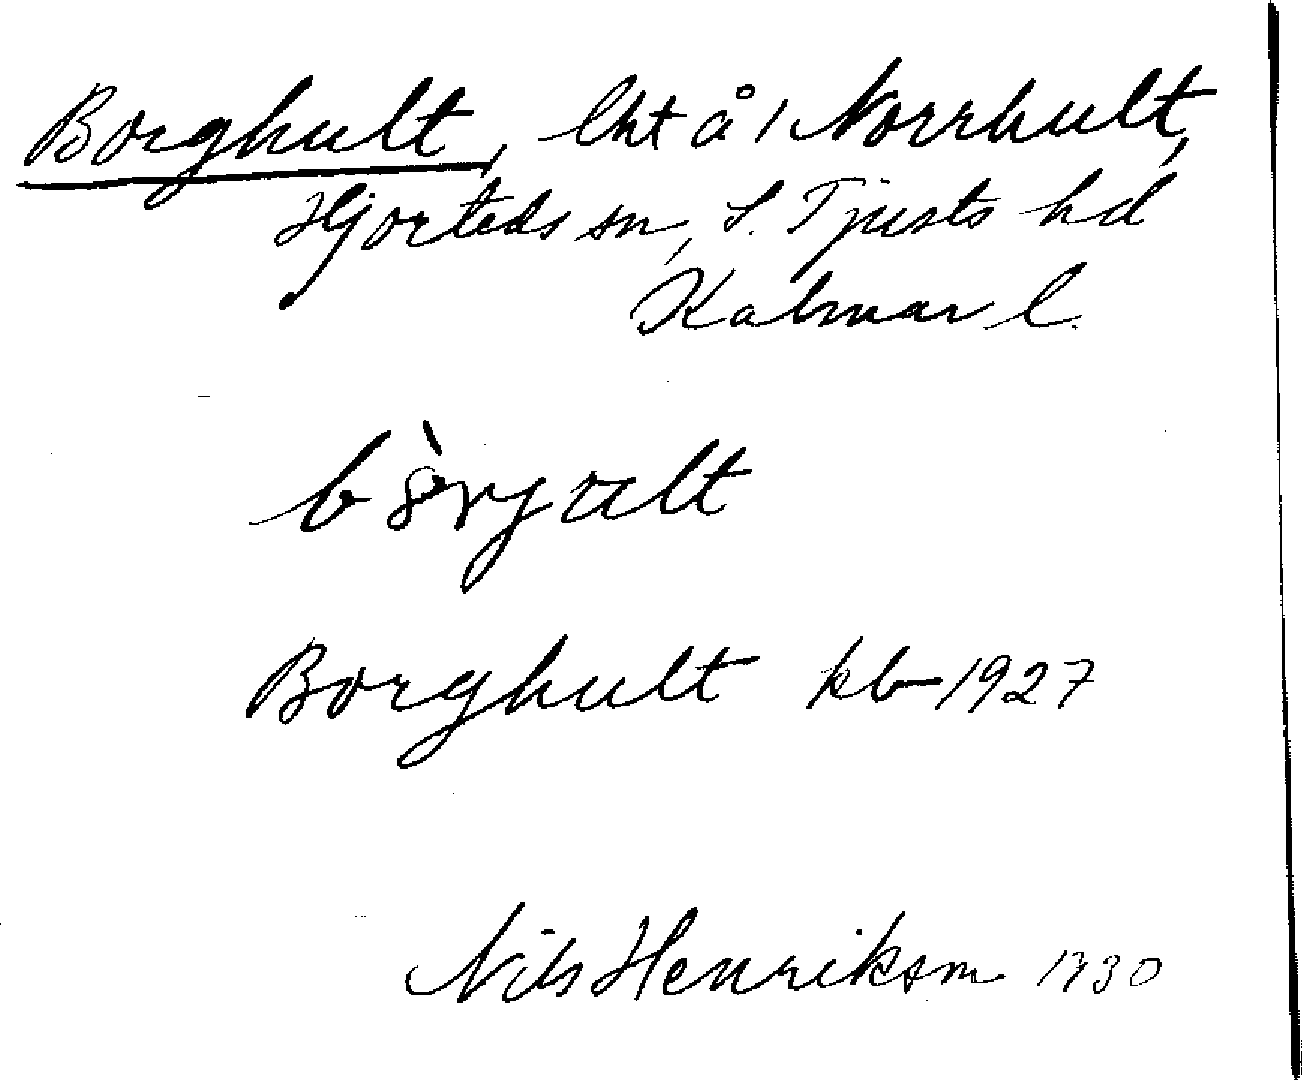 Borghult, lht å 1 Norrhult,
Hjorteds sn, S. Tjusts hd
Kalmar l.
Borghult kb 1927
Nils Henriksson 1930